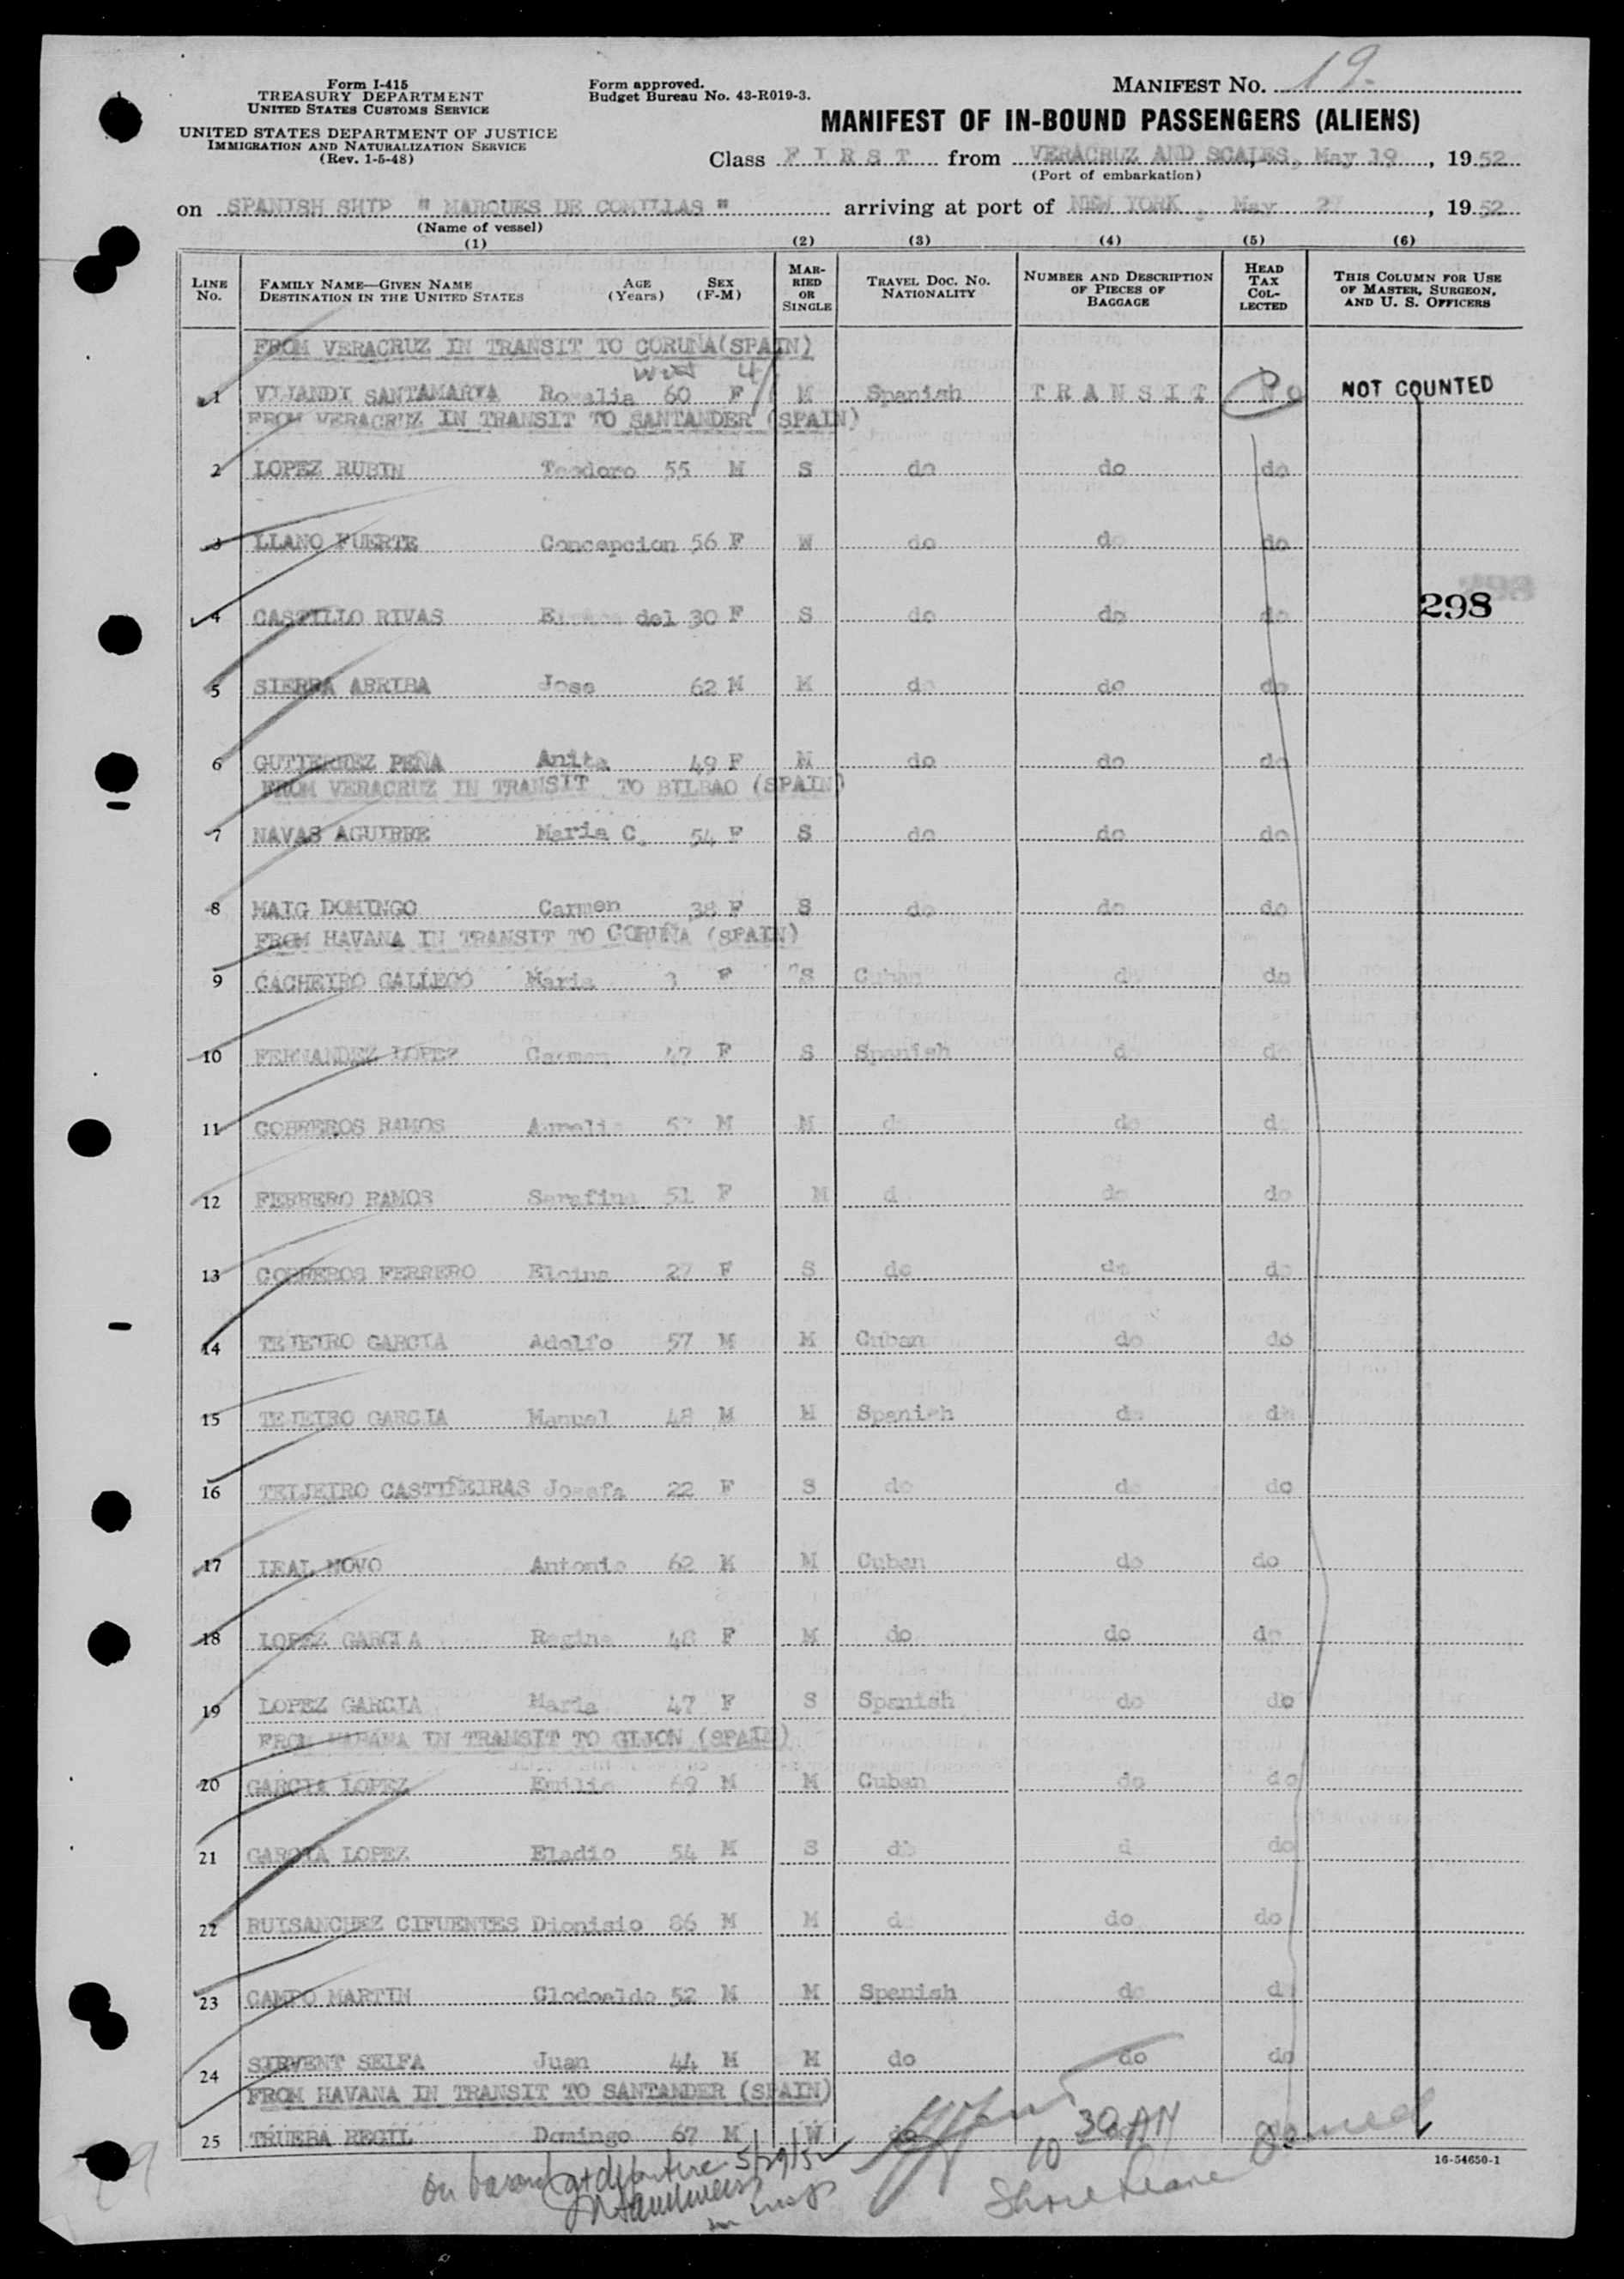 Form I-415
TREASURY DEPARTMENT
UNITED STATES CUSTOMS SERVICE
UNITED STATES DEPARTMENT OF JUSTICE
IMMIGRATION AND NATURALIZATION SERVICE
(Rev. 1-5-48)
Form approved.
Budget Bureau No. 43-R019-3.
MANIFEST NO. 19.
MANIFEST OF IN-BOUND PASSENGERS (ALIENS)
Class FIRST from VERACRUZ AND SCALES, May 19, 1952
(Port of embarkation)
on SPANISH SHIP "MARQUES DE COMILLAS" arriving at port of NEW YORK, May 27, 1952
(Name of vessel)
(1) (2) (3) (4) (5) (6)
LINE NO. FAMILY NAME—GIVEN NAME DESTINATION IN THE UNITED STATES AGE (Years) SEX (F-M) MARRIED OR SINGLE TRAVEL DOC. NO. NATIONALITY NUMBER AND DESCRIPTION OF PIECES OF BAGGAGE HEAD TAX COLLECTED THIS COLUMN FOR USE OF MASTER, SURGEON, AND U. S. OFFICERS
FROM VERACRUZ IN TRANSIT TO CORUÑA(SPAIN)
1 VIJANDI SANTAMARYA Rosalia 60 F M Spanish TRANSIT No NOT COUNTED
FROM VERACRUZ IN TRANSIT TO SANTANDER (SPAIN)
2 LOPEZ RUBIN Teodoro 55 M S do do do
3 LLANO FUERTE Concepcion 56 F W do do do
4 CASTILLO RIVAS del 30 F S do do do
298
5 SIERRA ARRIBA Jose 62 M M do do do
6 GUTIERREZ PEÑA Anita 49 F M do do do
FROM VERACRUZ IN TRANSIT TO BILBAO (SPAIN)
7 NAVAS AGUIRRE Maria C. 54 F S do do do
8 MAIG DOMINGO Carmen 38 F S do do do
FROM HAVANA IN TRANSIT TO CORUÑA (SPAIN)
9 CACHEIRO GALLEGO Maria 3 F S Cuban do do
10 FERNANDEZ LOPEZ Carmen 47 F S Spanish do do
11 COBREROS RAMOS M M do do do
12 FERRERO RAMOS Serafina 51 F M do do do
13 COBREROS FERRERO Elcina 27 F S do do do
14 TEJEIRO GARCIA Adolfo 57 M M Cuban do do
15 TEJEIRO GARCIA Manuel 48 M M Spanish do do
16 TEIJEIRO CASTIÑEIRAS Josefa 22 F S do do do
17 LEAL NOVO Antonio 62 M M Cuban do do
18 LOPEZ GARCIA Regina 48 F M do do do
19 LOPEZ GARCIA Maria 47 F S Spanish do do
FROM HABANA IN TRANSIT TO GIJON (SPAIN)
20 GARCIA LOPEZ Emilio 69 M M Cuban do do
21 GARCIA LOPEZ Eladio 54 M S do d do
22 RUISANCHEZ CIFUENTES Dionisio 86 M M do do do
23 CAMPO MARTIN Clodoaldo 52 M M Spanish do do
24 SIRVENT SELFA Juan 44 M M do do do
FROM HAVANA IN TRANSIT TO SANTANDER (SPAIN)
25 TRUEBA REGIL Domingo 67 M W do
10 30 AM
16-54650-1
on board at departure 5/29/52
Shore Leave